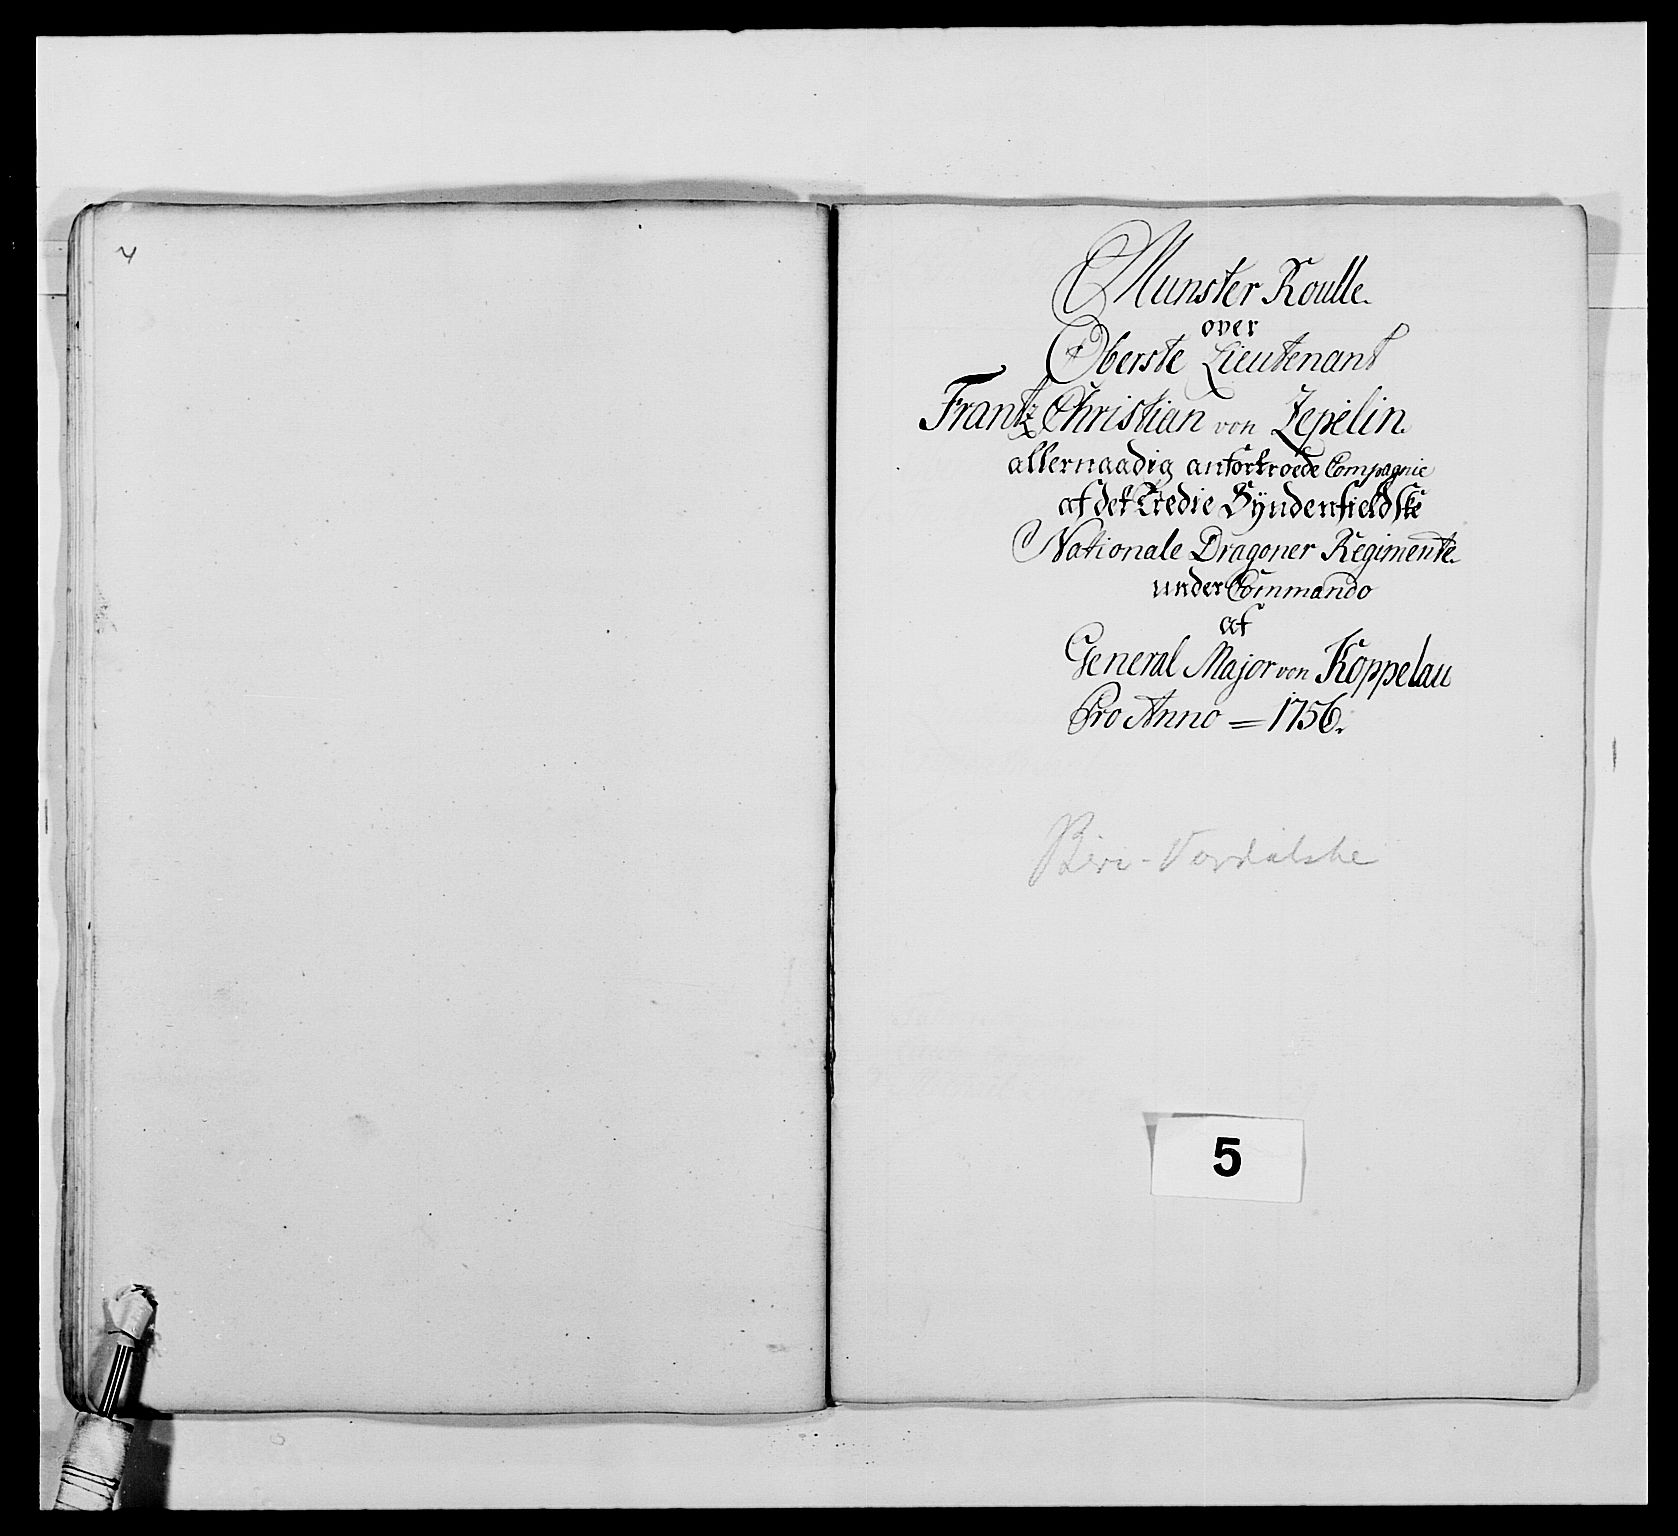 Munster Roulle.
over
Oberste Lieutenant
Frantz Christian von Zepelin.
allernaadig anfortroede Compagnie
af det Tredie Syndenfieldske
Nationale Dragoner Regimente.
under Commando
af
General Major von Koppelau
Pro Anno = 1756.
Biri - Vardalske
5